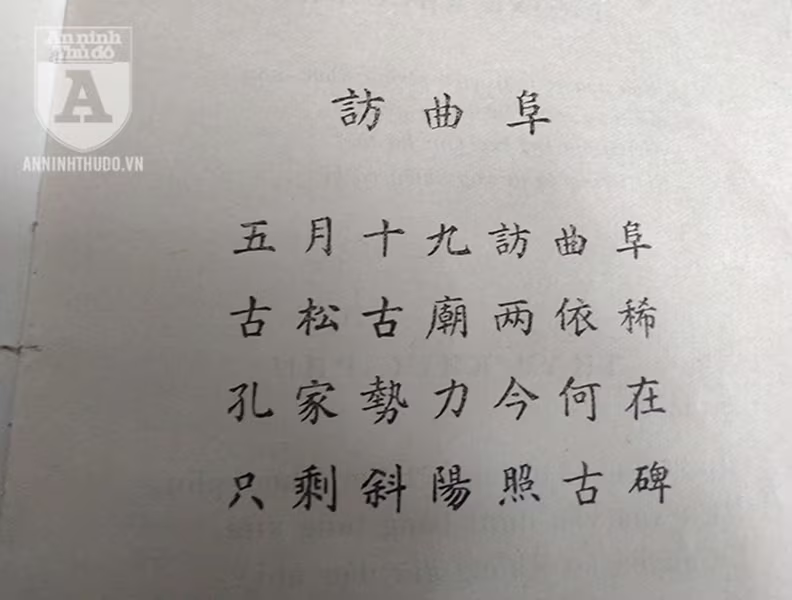 An ninh
Thủ đô
A
ANNINHTHUDO.VN
訪曲阜
五月十九訪曲阜
古松古廟两依稀
孔家勢力今何在
只剩斜陽照古碑